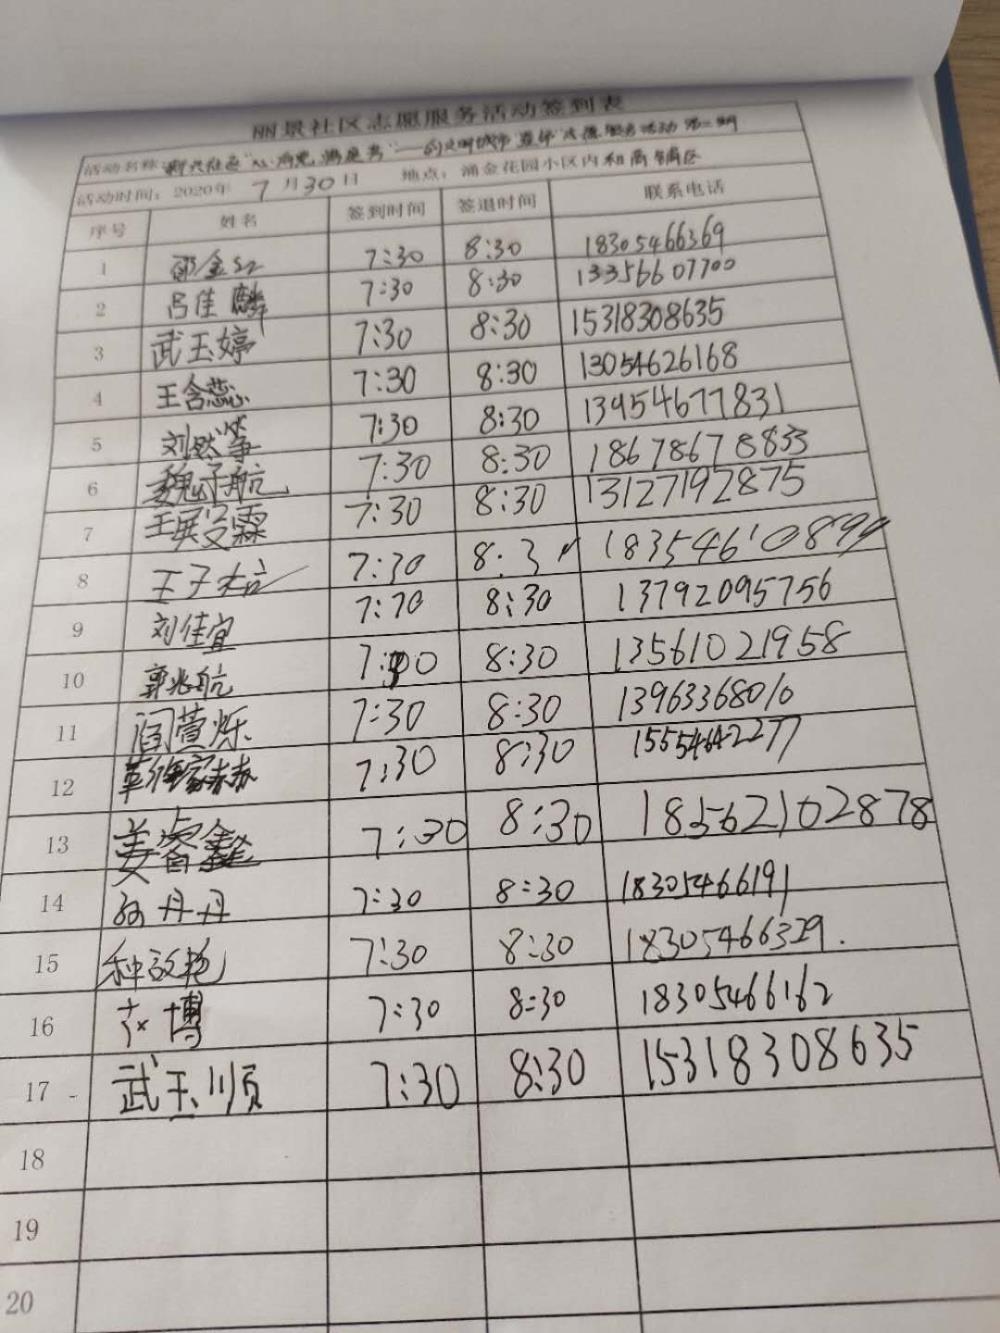 丽景社区志愿服务活动签到表
活动名称
活动时间：2020年 7月30日 地点：涌金花园小区内和商铺区
序号 姓名 签到时间 签退时间 联系电话
1 7:30 8:30 18305466369
2 吕佳麟 7:30 8:30 13356607700
3 武玉婷 7:30 8:30 15318308635
4 王含蕊 7:30 8:30 13054626168
5 7:30 8:30 13954677831
6 魏子航 7:30 8:30 18678678833
7 7:30 8:30 13127192875
8 7:30 8:3 18354610899
9 刘佳宜 7:30 8:30 13792095756
10 郭兆航 7:30 8:30 13561021958
11 闫萱烁 7:30 8:30 13963368010
12 7:30 8:30 15554642277
13 姜睿鑫 7:30 8:30 18562102878
14 孙丹丹 7:30 8:30 18305466191
15 7:30 8:30 18305466329.
16 博 7:30 8:30 18305466162
17 武玉顺 7:30 8:30 15318308635
18
19
20